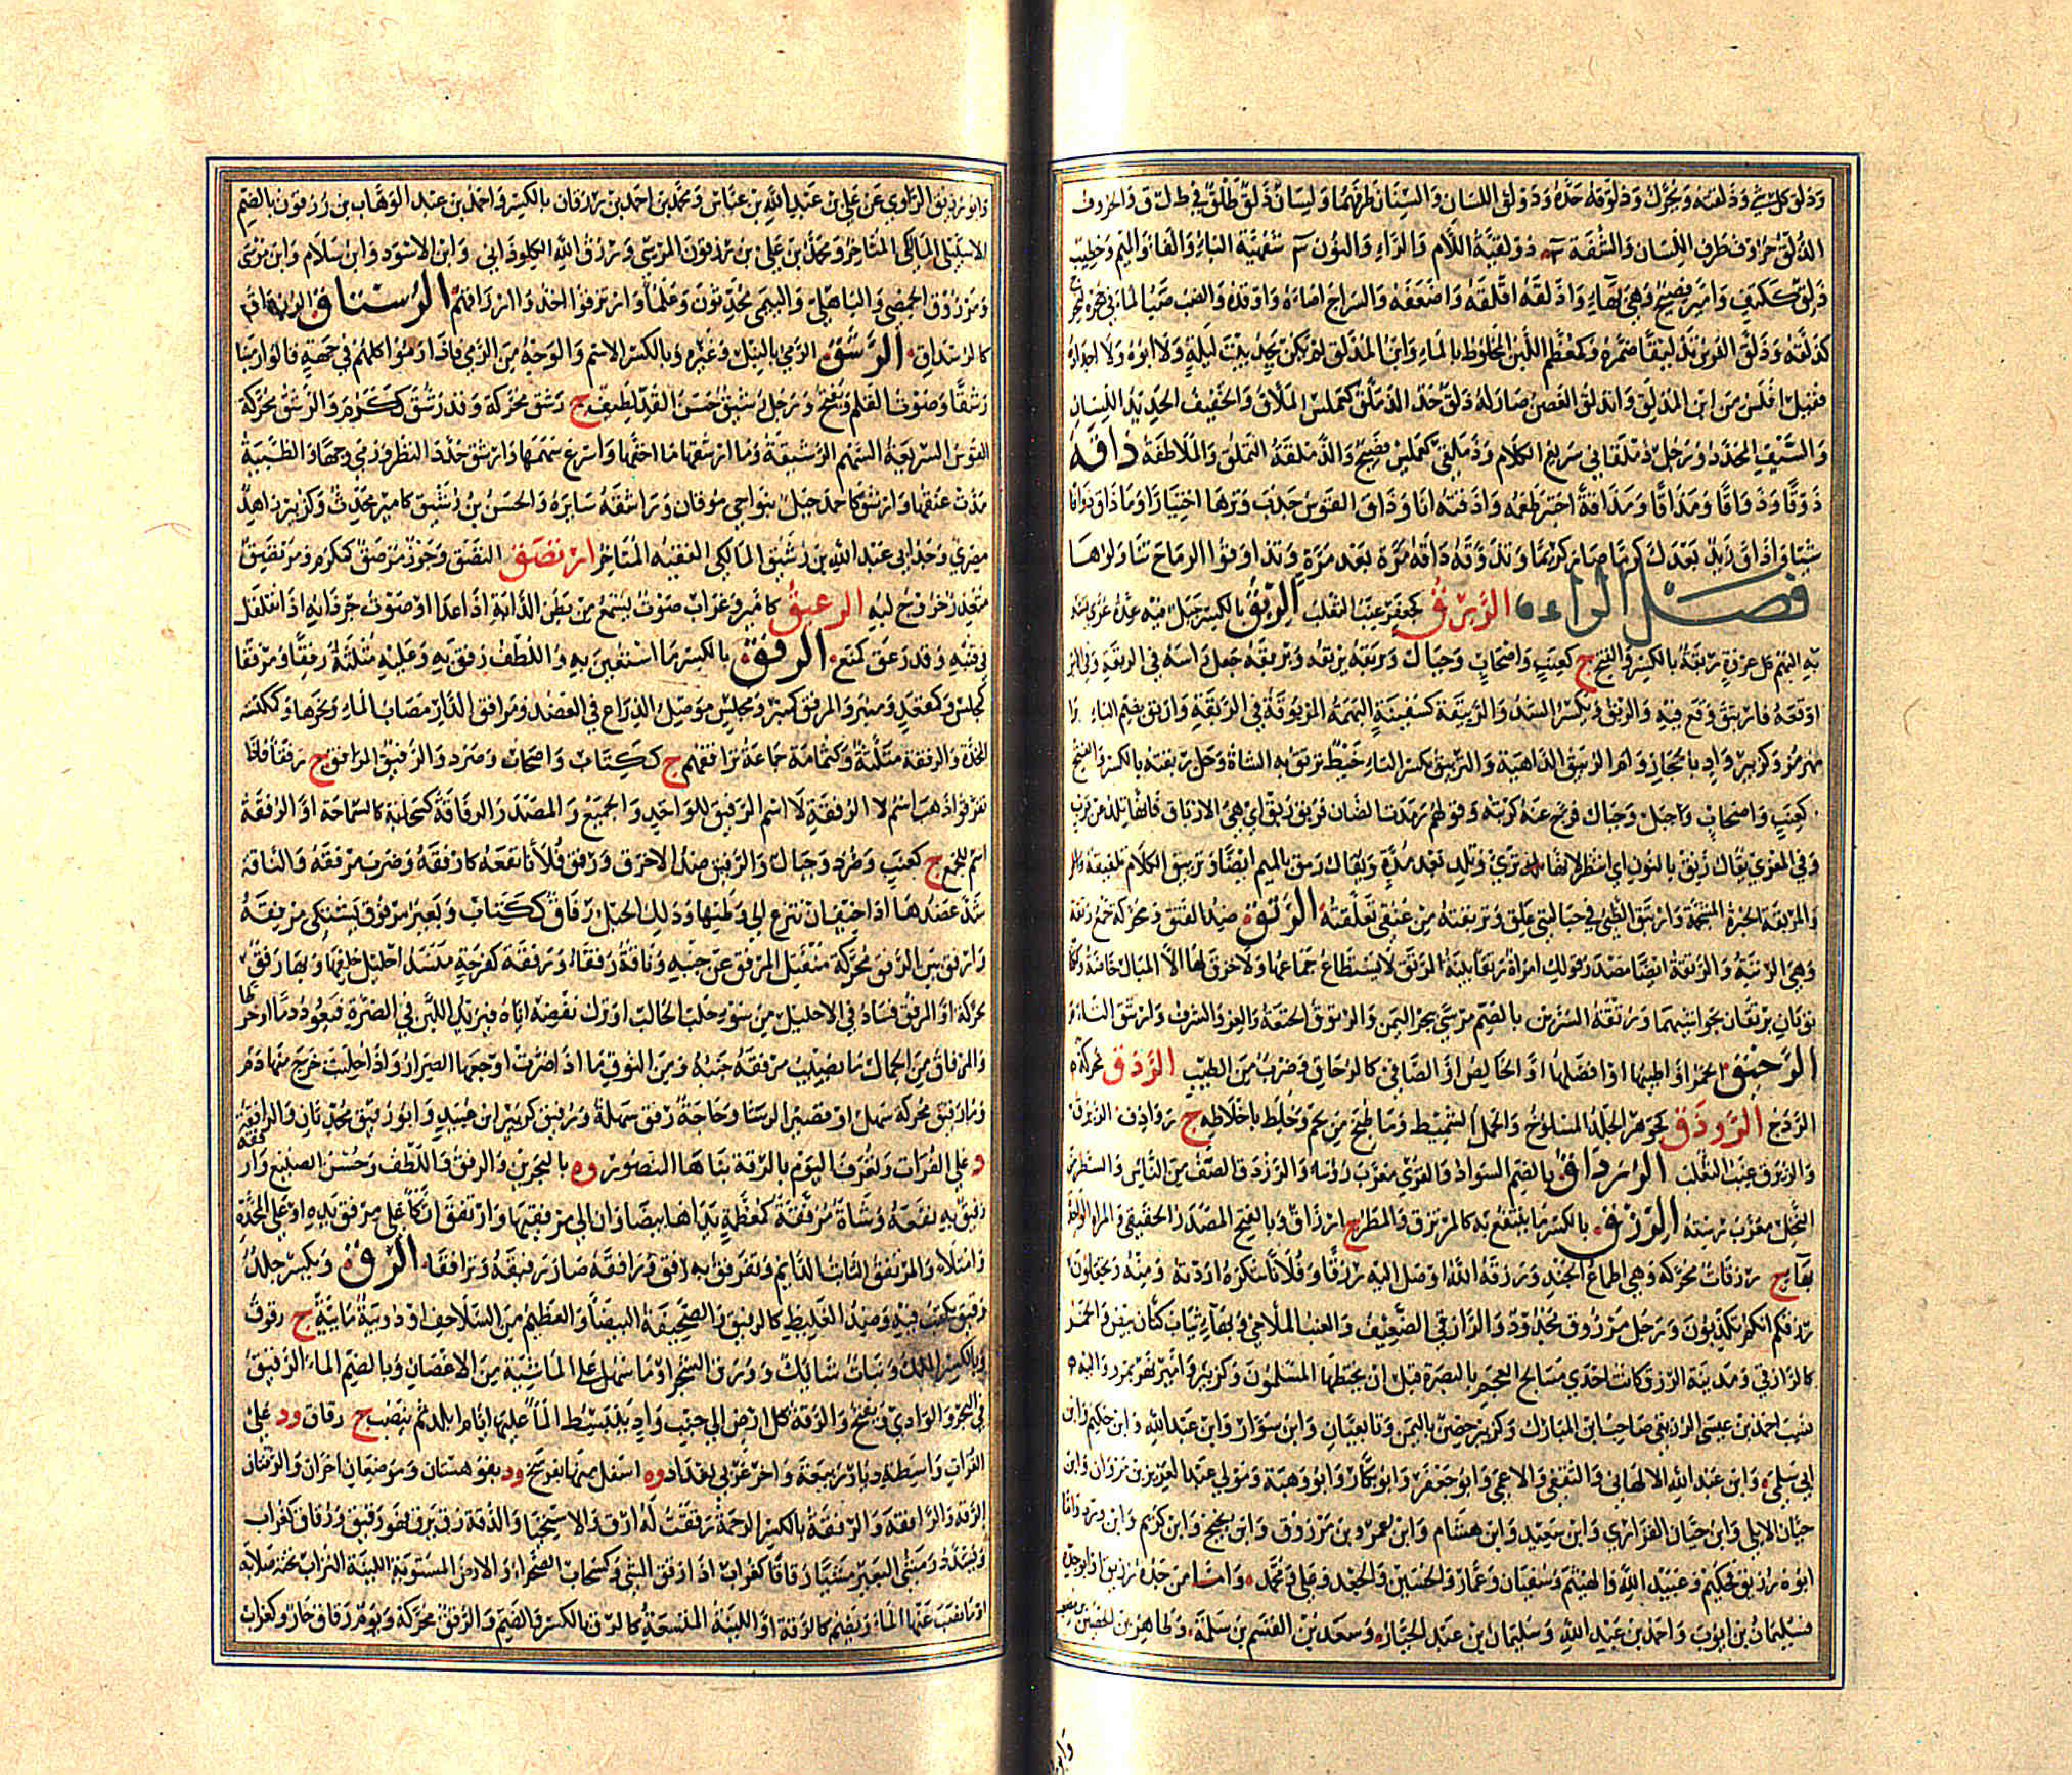 وذلق كل شيء وذلقته ويحرك وذولقه حده وذولق اللسان والسنان طرفهما ولسان ذلق طلق في ط ل ق والحروف
الذلق حروف طرف اللسان والشفة ذولقية اللام والراء والنون شفهية الباء والفاء والميم وخطيب
ذلق ككتف وامير فصيح وهي بهاء واذلقه اقلقه واضعفه والسراج اضاءه واوقده والضب صب الماء في جحره ليخرج
كذلقه وذلق الفرس تذليقا ضمره وكمعظم اللبن المخلوط بالماء وابن المذلق لم يكن يجد بيت ليلة ولا ابوه ولا اجداده
فقيل افلس من ابن المذلق وانذلق الغصن صار له ذلق حد الذملق كعملس الملاق والخفيف الحديد اللسان
والسيف المحدد ورجل ذملقاني سريع الكلام وذملقي كعملس فصيح والذملقة التملق والملاطفة ذاقه
ذوقا وذواقا ومذاقا ومذاقة اختبر طعمه واذقته انا وذاق القوس جذب وترها اختبارا وما ذاق ذواقا
شيئا واذاق زيد بعدك كرما صار كريما وتذوقه ذاقه مرة بعد مرة وتذاوقوا الرماح تناولوها
فصل الراء الربرق كجعفر عنب الثعلب الربق بالكسر حبل فيه عدة عرى يشد
به البهم كل عروة ربقة بالكسر والفتح ج كعنب واصحاب وجبال وربقه يربقه ويربقه جعل راسه في الربقة وفي الامر
اوقعه فارتبق وقع فيه والربق ويكسر الشد والربيقة كسفينة البهمة المربوقة في الربقة واربق بضم الباء
وكزبير واد بالحجاز وام الربيق الداهية والتربيق بكسر التاء خيط تربق به الشاة وحل ربقته بالكسر والفتح
كعنب واصحاب وجبال فرج عنه كربته وقولهم رمدت الضان فربق ربق اي هيئ الارباق فانها تلد عن قرب
وفي المعزى يقال رنق بالنون اي انتظر لانها تري وتلد بعد مدة ويقال رمق بالميم ايضا وتربيق الكلام تلفيقه
والمربقة الخبزة المشحمة وارتبق الظبي في حبالتي علق وتربقته من عنقي تعلقته الرتق ضد الفتق ومحركة جمع رتقة
وهي الرتبة والرتقة ايضا مصدر قولك امراة رتقاء بينة الرتق لا يستطاع جماعها ولا خرق لها الا المبال خاصة
ثوبان يرتقان بحواشيهما ورتقة السرين بالضم مرسى ببحر اليمن والرتوق الحتعة والعز والشرف وارتتق التاء
الرحيق الخمر او اطيبها او افضلها او الخالص او الصافي كالرحاق وضرب من الطيب الردق محركة
الردج الروذق كجوهر الجلد المسلوخ والحمل السميط وما طبخ من لحم وخلط باخلاطه ج رواذق الرزق
والرزق عنب الثعلب الرزداق بالضم السواد والقرى معرب رستا والرزدق الصف من الناس والسطر من
النخل معرب رسته الرزق بالكسر ما ينتفع به كالمرتزق والمطر ج ارزاق وبالفتح المصدر الحقيقي والمرة الواحدة
بهاء ج رزقات محركة وهي اطماع الجند ورزقه الله اوصل اليه رزقا وفلانا شكره ازدية ومنه وتجعلون
رزقكم انكم تكذبون ورجل مرزوق مجدود والرازقي الضعيف والعنب الملاحي وبهاء ثياب كتان بيض والخمر
كالرازقي ومدينة الرزق كانت احدى مسالح العجم بالبصرة قبل ان يختطها المسلمون وكزبير وامير نهر بمرو واليه
نسب احمد بن عيسى الرزيقي صاحب ابن المبارك وكزبير حصن باليمن وتابعيان وابن سوار وابن عبد الله وابن حكيم وابن
ابي سلمى وابن عبد الله الالهاني والثقفي والاعمى وابو جعفر وابو بكار وابو وهبة ومولى عبد العزيز بن مروان وابن
حيان الايلي وابن حيان الفزاري وابن سعيد وابن هشام وابن عمر وبن مرزوق وابن نجيح وابن كريم وابن ورد واما
ابوه رزيق فحكيم وعبيد الله والهيثم وسفيان وعمار والحسين والجعد وعلي ومحمد واما من جده رزيق
فسليمان بن ايوب واحمد بن عبيد الله وسليمان بن عبد الجبار وسعد بن القسم بن سلمة وطاهر بن الحسين بن مصعب
وابو رزيق الراوي عن علي بن عبد الله بن عباس ومحمد بن احمد بن رزقان بالكسر واحمد بن عبد الوهاب بن رزقون بالضم
الاشبيلي المالكي المتاخر ومحمد بن علي بن رزقون المرسي ورزق الله الكلوذاني وابن الاسود وابن سلام وابن موسى
ومرزوق الحمصي والباهلي والتيمي محدثون وعلماء وارتزقوا اخذوا ارزاقهم الرستاق الرزداق
كالرستداق الرشق الرمي بالنبل وغيره وبالكسر الاسم والوجه من الرمي فاذا رموا كلهم في جهة قالوا رمينا
رشقا وصوت القلم ويفتح ورجل رشيق حسن القد لطيفه ج رشق محركة وقد رشق ككرم والرشق محركة
القوس السريعة السهم الرشيقة وما ارشقها ما اخفها واسرع سهمها وارشق حدد النظر ورمى وجهها والظبية
مدت عنقها وارشق كاحمد جبل بنواحي موقان وراشقه سايره والحسن بن رشيق كامير محدث وكزبير زاهد
مصري وجد ابي عبد الله بن رشيق المالكي الفقيه المتاخر ارتصق التصق وجوز مرصق كمكرم ومرتصق
متعذر خروج لبه الرعيق كامير وغراب صوت يسمع من بطن الدابة اذا عدا او صوت جردانه اذا تقلقل
في قنبه وقد رعق كمنع الرفق بالكسر ما استعين به واللطف رفق به وعليه مثلثة رفقا ومرفقا
كمجلس وكمقعد ومنبر والمرفق كمنبر ومجلس موصل الذراع في العضد ومرافق الدار مصاب الماء ونحوها وكمكنسة
المخدة والرفقة مثلثة وكثمامة جماعة ترافقهم ج ككتاب واصحاب وصرد والرفيق المرافق ج رفقاء فاذا
تفرقوا ذهب اسم لا الرفقة لا اسم الرفيق للواحد والجميع والمصدر الرفاقة كسحابة كالسماحة او الرفقة
اسم للجمع ج كعنب وصرد وجبال والرفيق ضد الاخرق ورفق فلانا نفعه كارفقه وضرب مرفقه والناقة
شد عضدها اذا خيف ان تنزع الى وطنها وذلك الحبل رفاق ككتاب وبعير مرفوق يشتكي مرفقه
وارفق بين الرفق محركة منفتل المرفق عن جنبه وناقة رفقاء ورفقة كفرحة منسد احليل خلفها وبها رفق
محركة او الرفق فساد في الاحليل من سوء حلب الحالب او ترك نفضه اياه فيرتد اللبن في الضرة فيعود دما او خرطا
والمرفاق من الجمال ما يصيب مرفقه جنبه ومن النوق ما اذا صرت اوجعها الصرار واذا حلبت خرج منها دم
وماء رفق محركة سهل او قصير الرشاء وحاجة رفق سهلة ورفيق كزبير ابن عبيد وابو رفيق محدثان والرافقة
د على الفرات وتعرف اليوم بالرقة بناها المنصور وه بالبحرين والرفق واللطف وحسن الصنيع وارفقه
رفق به نفعه وشاة مرفقة كمعظمة يداها بيضاوان الى مرفقيها وارتفق اتكا على مرفق يده او على المخدة
وامتلاء والمرتفق الثابت الدائم وترفق به رفق ورافقه صار رفيقه وترافقا الرق ويكسر جلد
رقيق يكتب فيه وضد الغليظ كالرقيق والصحيفة البيضاء والعظيم من السلاحف او دويبة مائية ج رقوق
وبالكسر الملك ونبات شائك وورق الشجر او ما سهل على الماشية من الاغصان وبالضم الماء الرقيق
في البحر والوادي ويفتح والرقة كل ارض الى جنب واد ينبسط الماء عليها ايام المد ثم ينضب ج رقاق ود على
الفرات واسطة ديار ربيعة واخر غربي بغداد وه اسفل منها بفرسخ ود بقوهستان وموضعان اخران والرقتان
الرقة والرافقة والرقة بالكسر الرحمة رققت له ارق والاستحياء والدقة رق يرق فهو رقيق ورقاق كغراب
ويشدد ومشى البعير مشيا رقاقا كغراب اذا رقق المشي وكسحاب الصحراء والارض المستوية اللينة التراب تحته صلابة
او ما نضب عنها الماء ويضم كالرقة او اللينة المتسعة كالرق بالكسر والضم والرقق محركة ويوم رقاق حار وكغراب